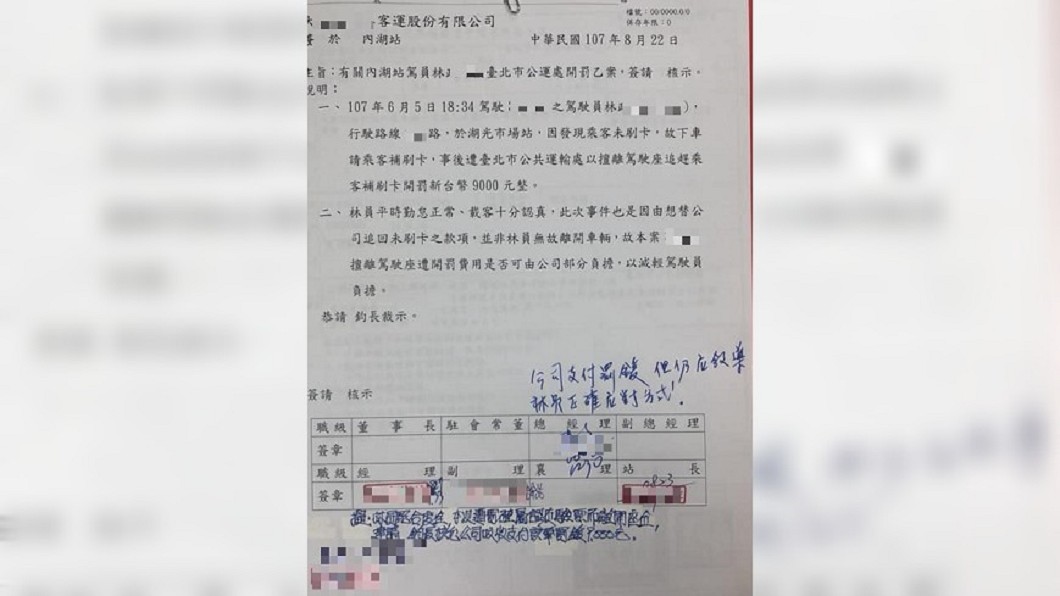 客運股份有限公司
檔號：00/0000/0/0
保存年限：0
於 內湖站
中華民國 107 年 8 月 22 日
旨：有關內湖站駕員林 臺北市公運處開罰乙案，簽請 核示。
說明：
一、107 年 6 月 5 日 18:34 駕駛 之駕駛員林 )，
行駛路線 路，於湖光市場站，因發現乘客未刷卡，故下車
請乘客補刷卡，事後遭臺北市公共運輸處以擅離駕駛座追趕乘
客補刷卡開罰新台幣 9000 元整。
二、林員平時勤怠正常、載客十分認真，此次事件也是因由想替公
司追回未刷卡之款項，並非林員無故離開車輛，故本案
擅離駕駛座遭開罰費用是否可由公司部分負擔，以減輕駕駛員
負擔。
恭請 鈞長裁示。
公司支付罰鍰，但仍應教導
林員正確應對方式！
簽請 核示
職級 董事長 駐會常董 總經理 副總經理
簽章
職級 經理 副理 襄理 站長
簽章 0823